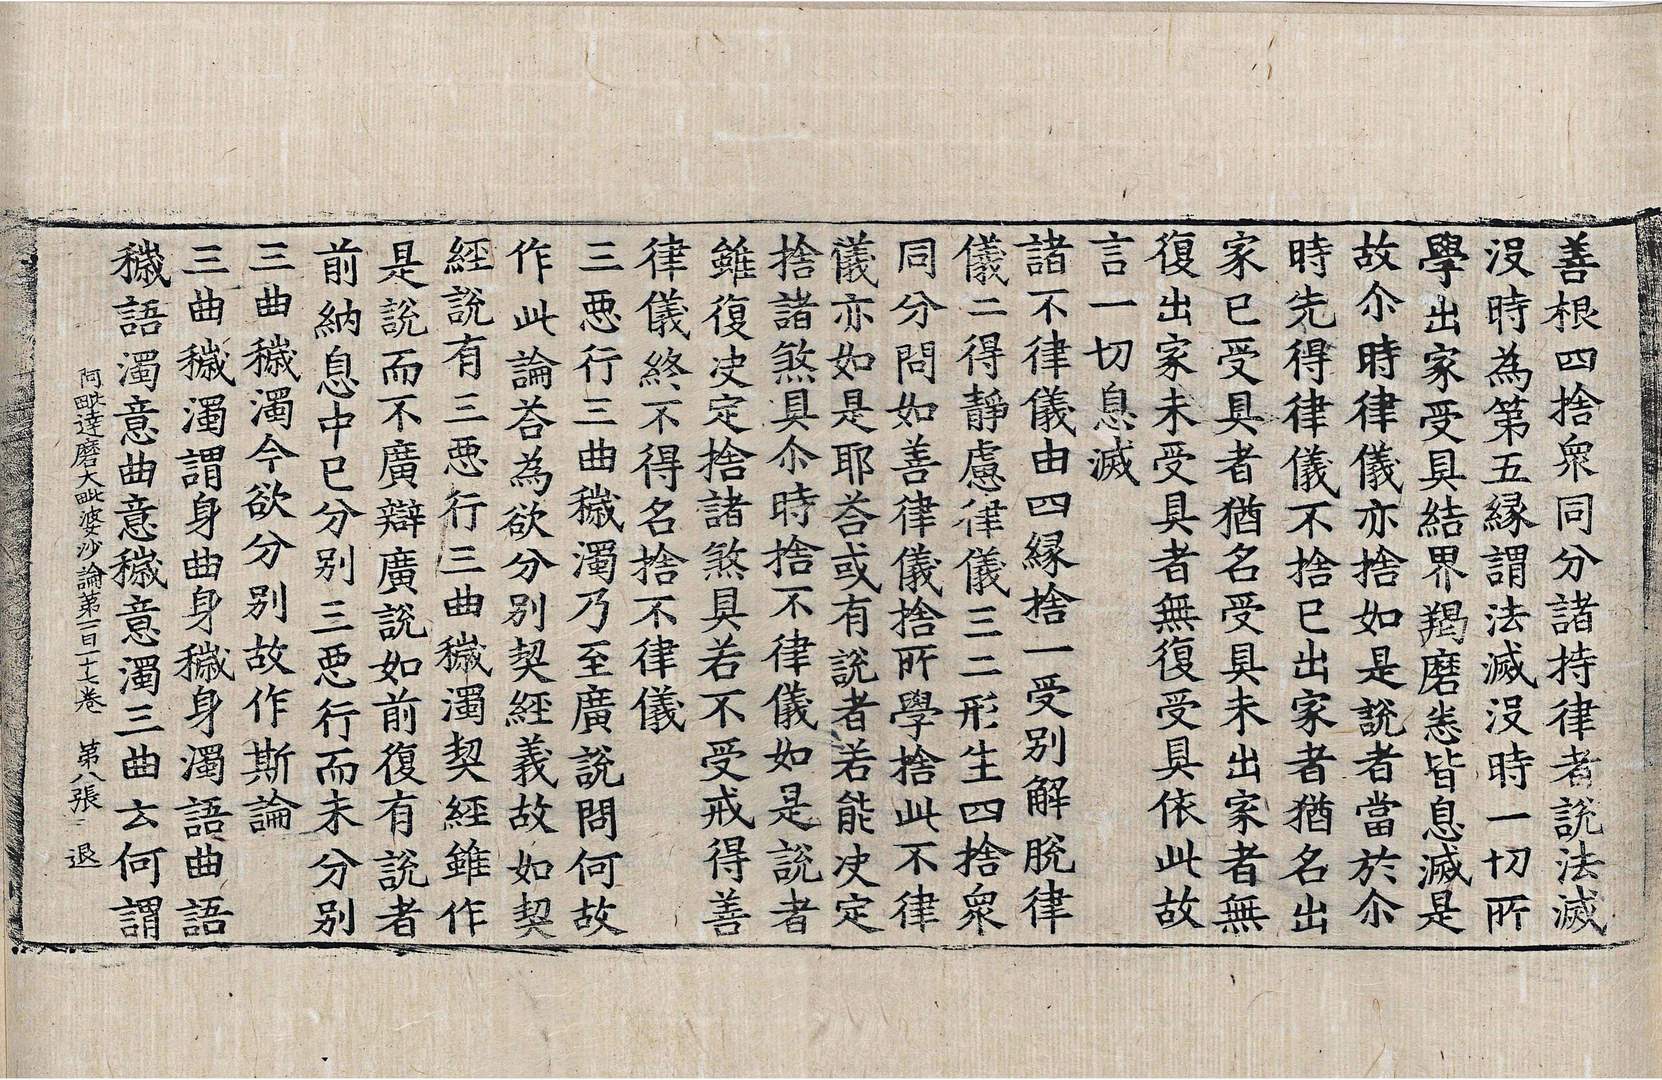 善根四捨衆同分諸持律者說法滅
沒時為第五縁謂法滅沒時一切所
學出家受具結界羯磨悉皆息滅是
故尒時律儀亦捨如是說者當於尒
時先得律儀不捨已出家者猶名出
家已受具者猶名受具未出家者無
復出家未受具者無復受具依此故
言一切息滅
諸不律儀由四縁捨一受別解脫律
儀二得靜慮律儀三二形生四捨衆
同分問如善律儀捨所學捨此不律
儀亦如是耶荅或有說者若能决定
捨諸煞具尒時捨不律儀如是說者
雖復决定捨諸煞具若不受戒得善
律儀終不得名捨不律儀
三惡行三曲穢濁乃至廣說問何故
作此論荅為欲分別契經義故如契
經說有三惡行三曲穢濁契經雖作
是說而不廣辯廣說如前復有說者
前納息中已分別三惡行而未分別
三曲穢濁今欲分別故作斯論
三曲穢濁謂身曲身穢身濁語曲語
穢語濁意曲意穢意濁三曲云何謂
阿毗達磨大毗婆沙論第一百一十七卷 第八張 退